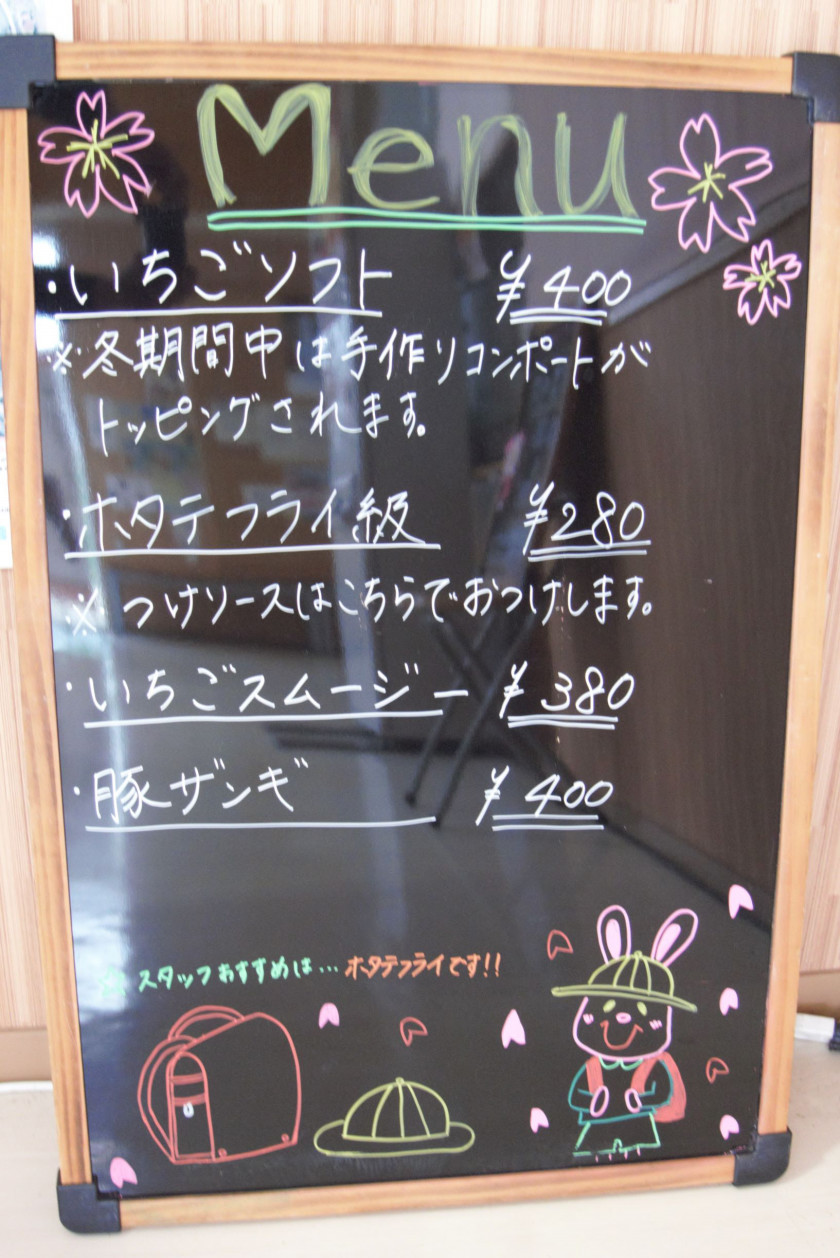 Menu
・いちごソフト ¥400
※冬期間中は手作りコンポートが
トッピングされます。
・ホタテフライ級 ¥280
※つけソースはこちらでおつけします。
・いちごスムージー ¥380
・豚ザンギ ¥400
☆スタッフおすすめは…ホタテフライです!!